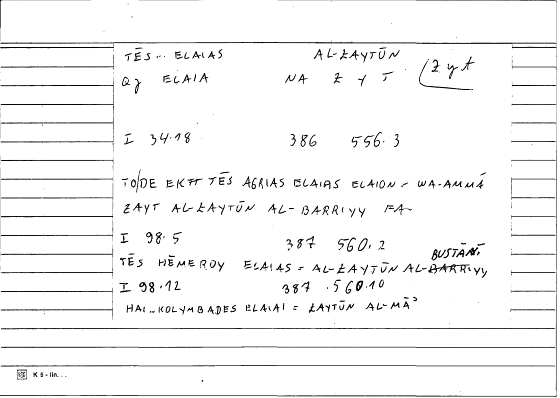 TĒS... ELAIAS AL-ZAYTŪN
Qg ELAIA NA Z Y T Zyt
I 34.18 386 556.3
TO/DE EK TĒS AGRIAS ELAIAS ELAION = WA-AMMĀ
ZAYT AL-ZAYTŪN AL-BARRIYY FA-
I 98.5 387 560.2
TĒS HĒMEROY ELAIAS = AL-ZAYTŪN AL-BUSTĀNĪ
I 98.12 387 .560.10
HAI...KOLYMBADES ELAIAI = ZAYTŪN AL-MĀʾ
K 5 - lin...